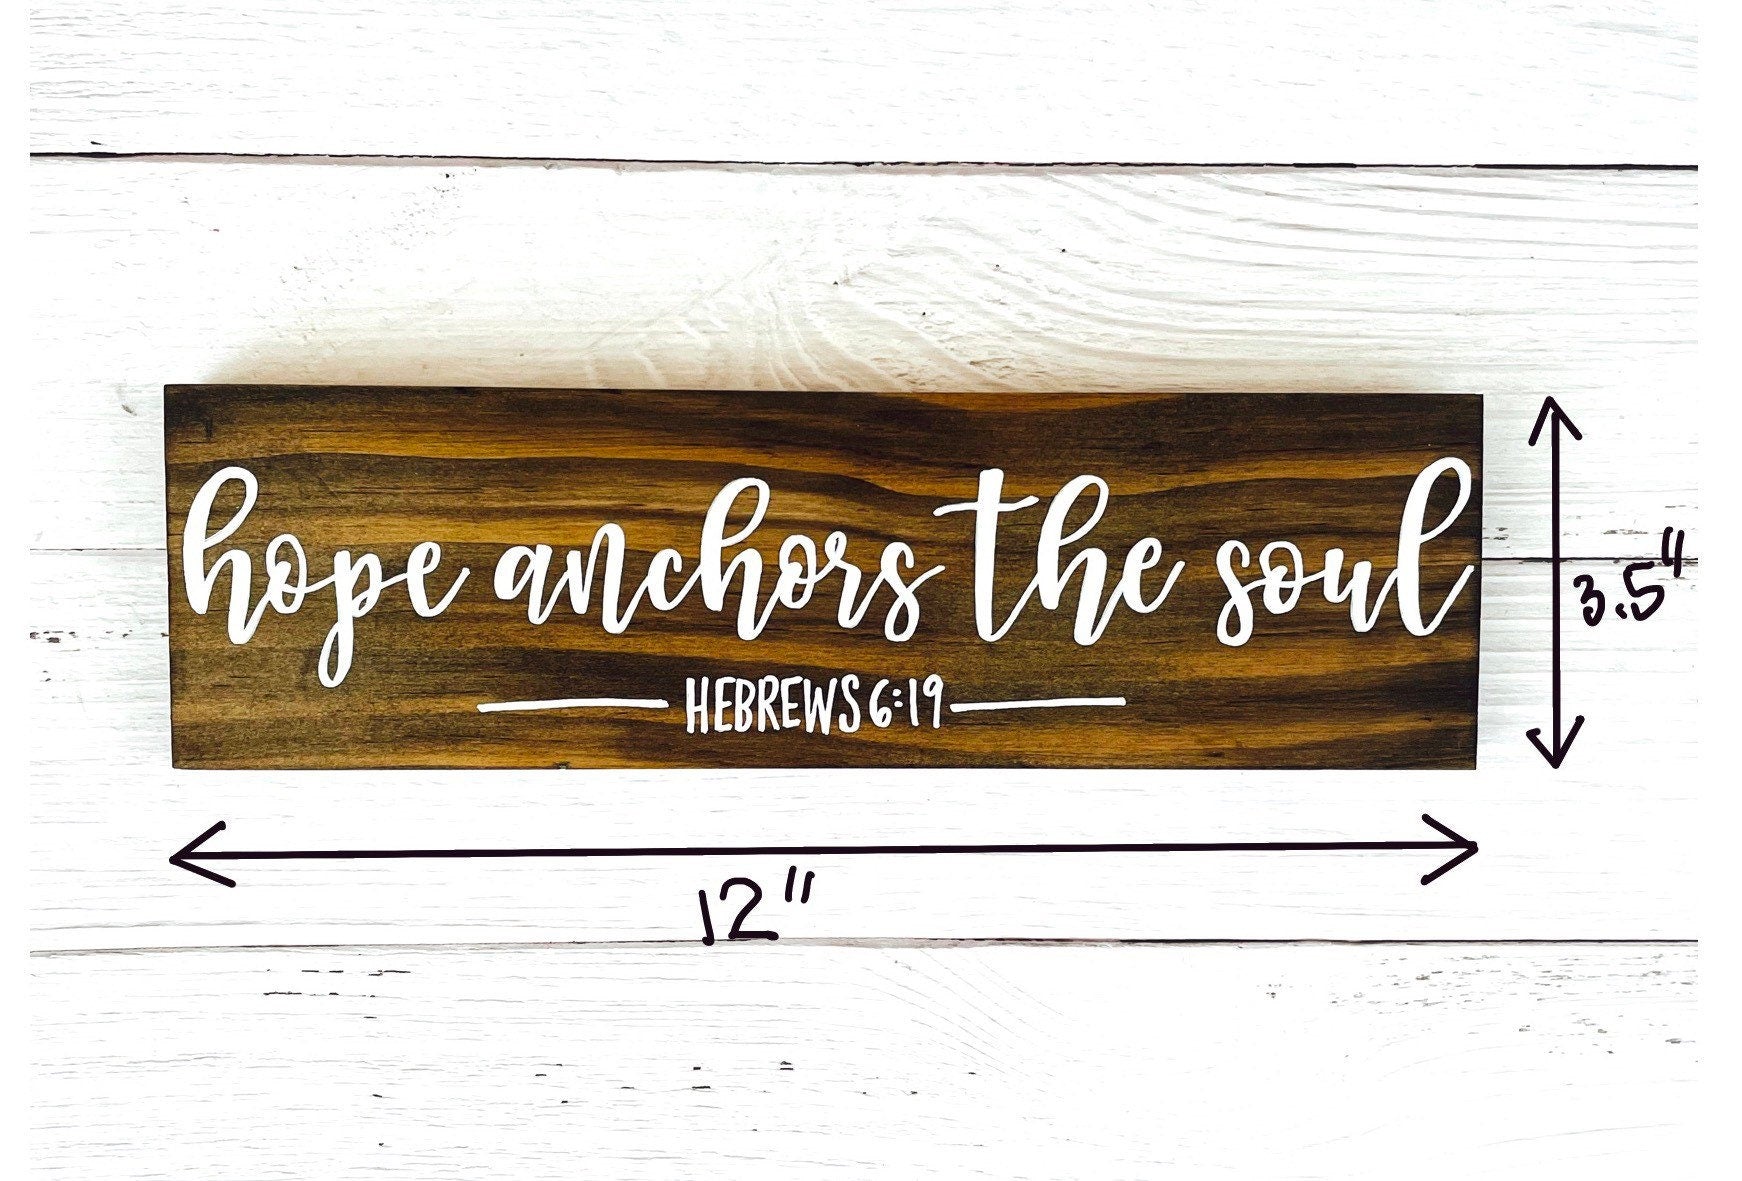 hope anchors the soul
HEBREWS 6:19
3.5"
12"